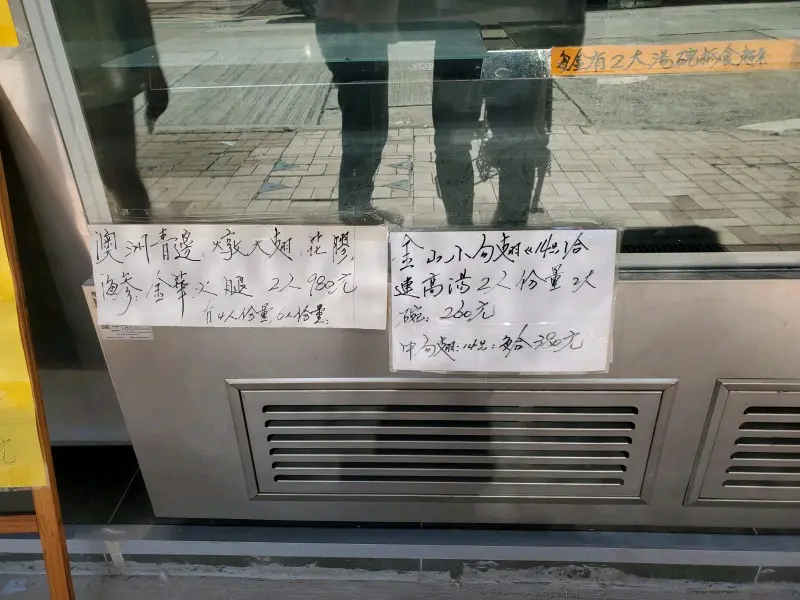 每盒有2大湯碗
澳洲青邊,燉大翅,花膠,
海參,金華火腿 2人980元
有4人份量,6人份量,
金山小勾翅 14只1合
連高湯2人份量2大
碗:260元
中勾翅:14只:每合380元
元